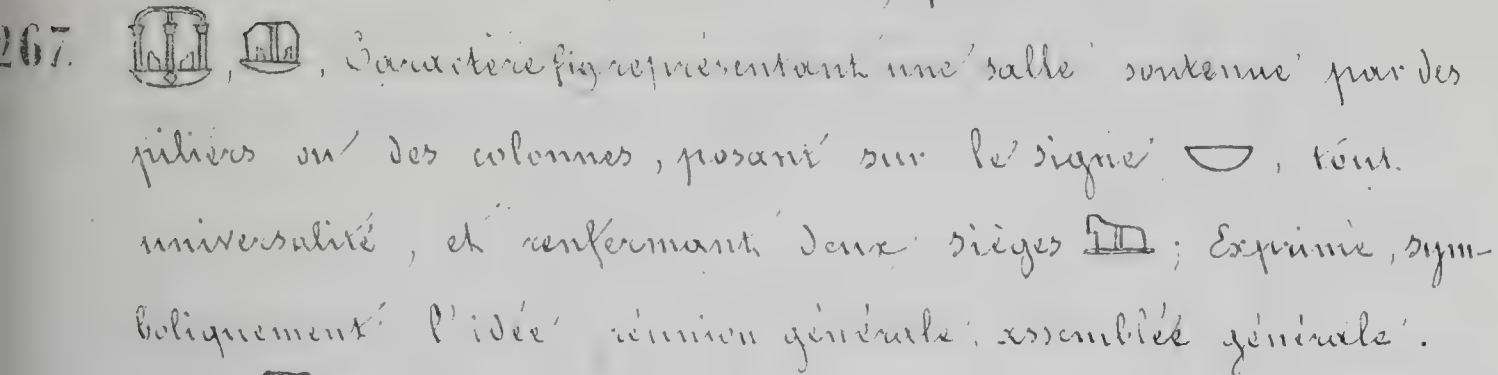 267. , , Caractère fig représentant une salle soutenue par des
piliers ou des colonnes, posant sur le signe , tout.
universalité, et renfermant deux sièges ; Exprime, sym-
boliquement l'idée réunion générale, assemblée générale.